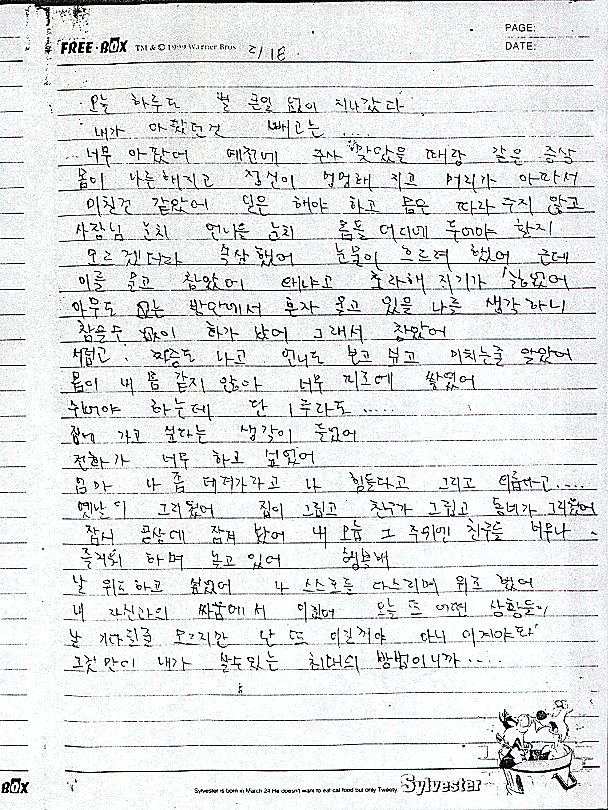 PAGE:
FREE·BOX TM & © 1999 Warner Bros 2/18 DATE:
오늘 하루도 별 큰일 없이 지나갔다
내가 아팠던것 빼고는 ....
너무 아팠어 예전에 주사 맞았을 때랑 같은 증상
몸이 나른해지고 정신이 멍멍해 지고 머리가 아파서
미칠건 같았어 일은 해야 하고 몸은 따라주지 않고
사장님 눈치 언니들 눈치 몸을 어디에 두어야 할지
모르겠더라 속상했어 눈물이 흐르려 했어 근데
이를 물고 참았어 왜냐고 초라해 지기가 싫었어
아무도 없는 방안에서 혼자 울고 있을 나를 생각하니
참을수 없이 화가 났어 그래서 참았어
서럽고 짜증도 나고 언니도 보고 싶고 미치는줄 알았어
몸이 내 몸 같지 않아 너무 피로에 쌓였어
쉬어야 하는데 단 1루라도 .....
집에 가고 싶다는 생각이 들었어
전화가 너무 하고 싶었어
엄마 나 좀 데려가라고 나 힘들다고 그리고 외롭다고....
옛날이 그리웠어 집이 그립고 친구가 그립고 동네가 그리웠어
잠시 공상에 잠겨 봤어 내 모습 그 주위엔 친구들 너무나
즐거워 하며 놀고 있어 행복해
날 위로하고 싶었어 나 스스로를 다스리며 위로 했어
내 자신과의 싸움에서 이겼어 오늘 또 어떤 상황들이
날 기다릴줄 모르지만 난 또 이길꺼야 아니 이겨야 돼
그것만이 내가 살수있는 최대의 방법이니까....
BOX
Sylvester is born in March 24 He doesn't want to eat cat food but only Tweety. Sylvester